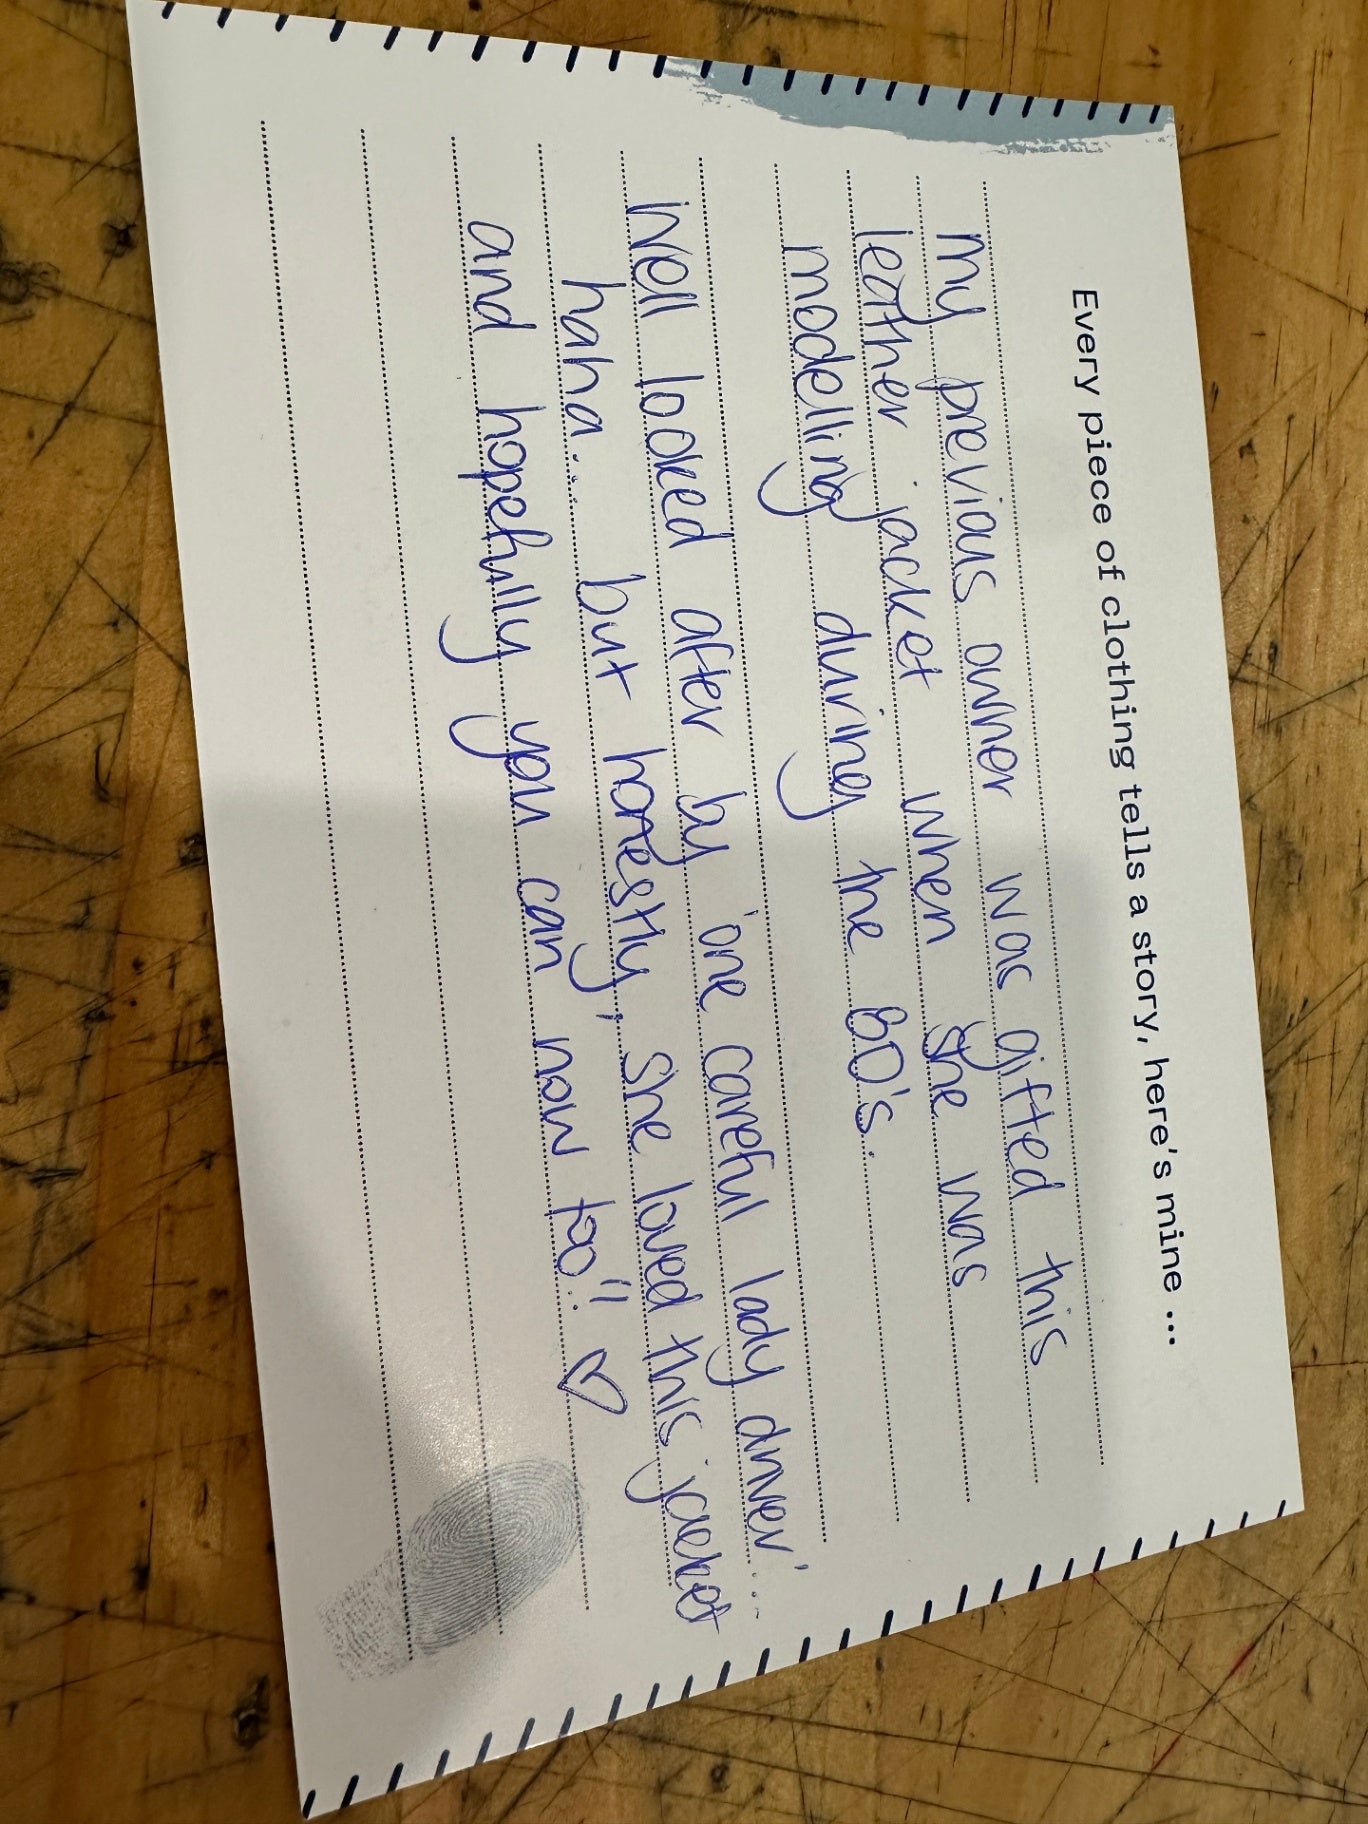 Every piece of clothing tells a story, here's mine ...
My previous owner was gifted this
leather jacket when she was
modelling during the 80's.
Well looked after by 'one careful lady driver'...
haha.... but honestly, she loved this jacket
and hopefully you can now too!! ♡